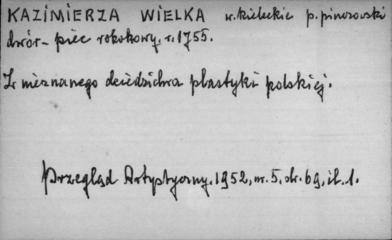 KAZIMIERZA WIELKA w. kieleckie p. pinczowski
dwór - piec rokokowy. r. 1755.
Z nieznanego dziedzictwa plastyki polskiej.
Przegląd Artystyczny. 1952, nr. 5, str. 69, il. 1.